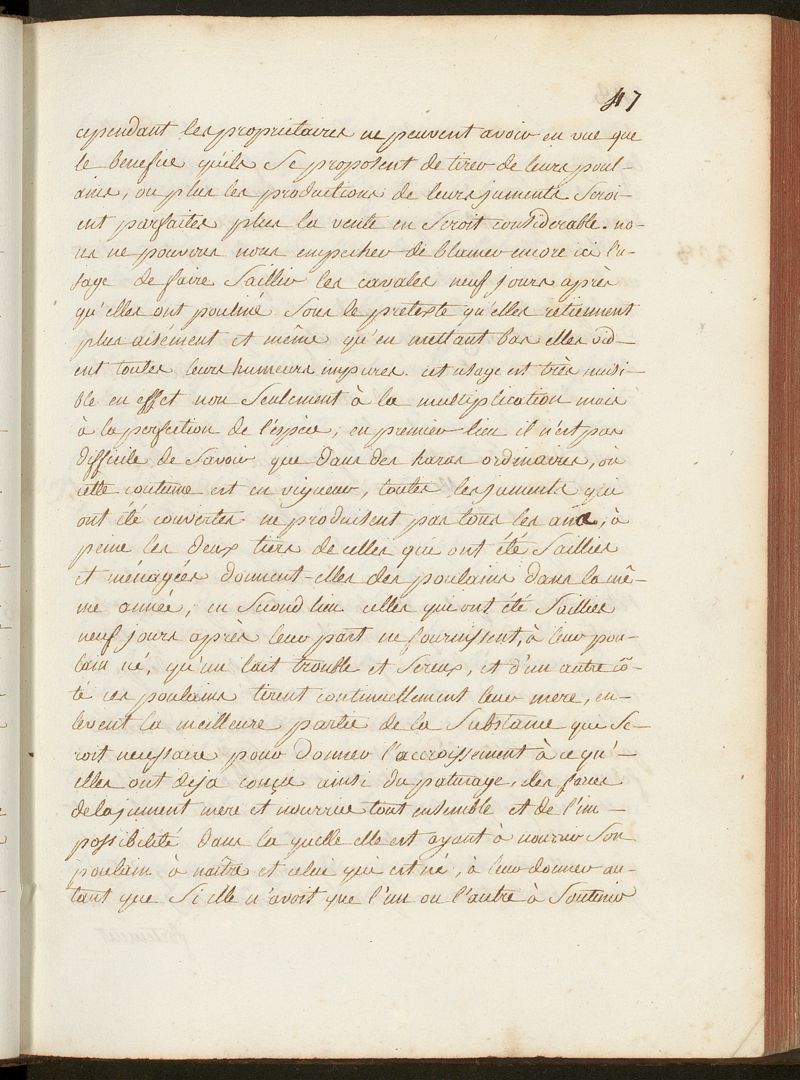 47
cependant les proprietaires ne peuvent avoir en vue que
le benefice qu'ils se proposent de tirer de leurs poul-
ains, ou plus les productions de leurs juments seroi-
ent parfaites plus la vente en seroit considerable. no-
us ne pouvons nous empecher de blamer encore ici l'u-
sage de faire saillir les cavales neuf jours après
qu'elles ont pouliné sous le pretexte qu'elles retiennent
plus aisément et même qu'en mettant bas elles vid-
ent toutes leurs humeurs impures. cet usage est très nuisi-
ble en effet non seulement à la multiplication mais
à la perfection de l'espèce; en premier lieu il n'est pas
difficile de savoir que dans des haras ordinaires, où
cette coutume est en vigueur, toutes les juments qui
ont été couvertes ne produisent pas tous les ans, à
peine les deux tiers de celles qui ont été saillies
et ménagées donnent-elles des poulains dans la mê-
me année, en second lieu celles qui ont été saillies
neuf jours après leur part ne fournissent, à leur pou-
lain né, qu'un lait trouble et sereux, et d'un autre cô-
té ces poulains tirent continuellement leur mere, en-
levent la meilleure partie de la substance qui se-
roit necessaire pour donner l'accroissement à ce qu'-
elles ont deja conçu ainsi du paturage, des forces
de la jument mere et nourrice tout ensemble et de l'im-
possibilité dans la quelle elle est ayant à nourrir son
poulain à naitre et celui qui est né, à leur donner au-
tant que si elle n'avoit que l'un ou l'autre à soutenir